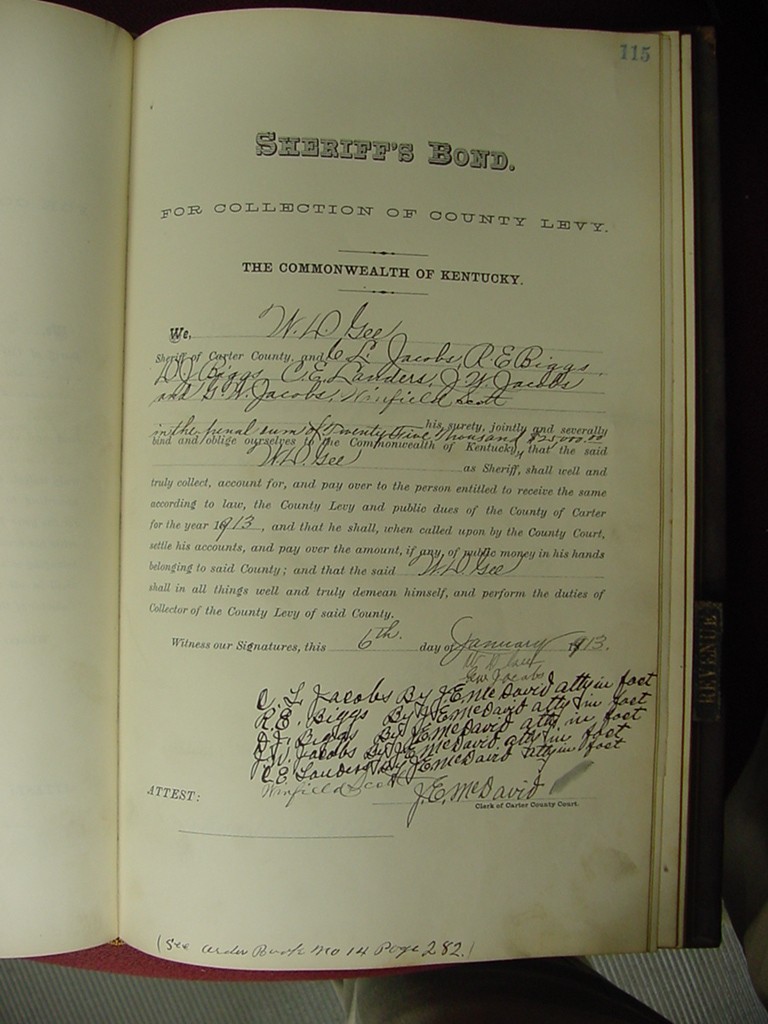 115
SHERIFF'S BOND.
FOR COLLECTION OF COUNTY LEVY.
THE COMMONWEALTH OF KENTUCKY.
We, W. D. Gee
Sheriff of Carter County, and C. L. Jacobs, R. E. Biggs,
D. J. Biggs, C. E. Landers, J. W. Jacobs
and G. W. Jacobs, Winfield Scott
his surety, jointly and severally
in the penal sum of Twenty five Thousand $25,000.00
bind and oblige ourselves to the Commonwealth of Kentucky, that the said
W. D. Gee as Sheriff, shall well and
truly collect, account for, and pay over to the person entitled to receive the same
according to law, the County Levy and public dues of the County of Carter
for the year 1913, and that he shall, when called upon by the County Court,
settle his accounts, and pay over the amount, if any, of public money in his hands
belonging to said County; and that the said W. D. Gee
shall in all things well and truly demean himself, and perform the duties of
Collector of the County Levy of said County.
Witness our Signatures, this 6th day of January 1913.
W. D. Gee
G W Jacobs
C. L. Jacobs By J. E. McDavid atty in fact
R. E. Biggs By J. E. McDavid atty in fact
D. J. Biggs By J. E. McDavid atty in fact
J. W. Jacobs By J. E. McDavid atty in fact
C. E. Landers By J. E. McDavid atty in fact
Winfield Scott
ATTEST: J. E. McDavid
Clerk of Carter County Court.
(See Order Book No 14 Page 282.)
REVENUE